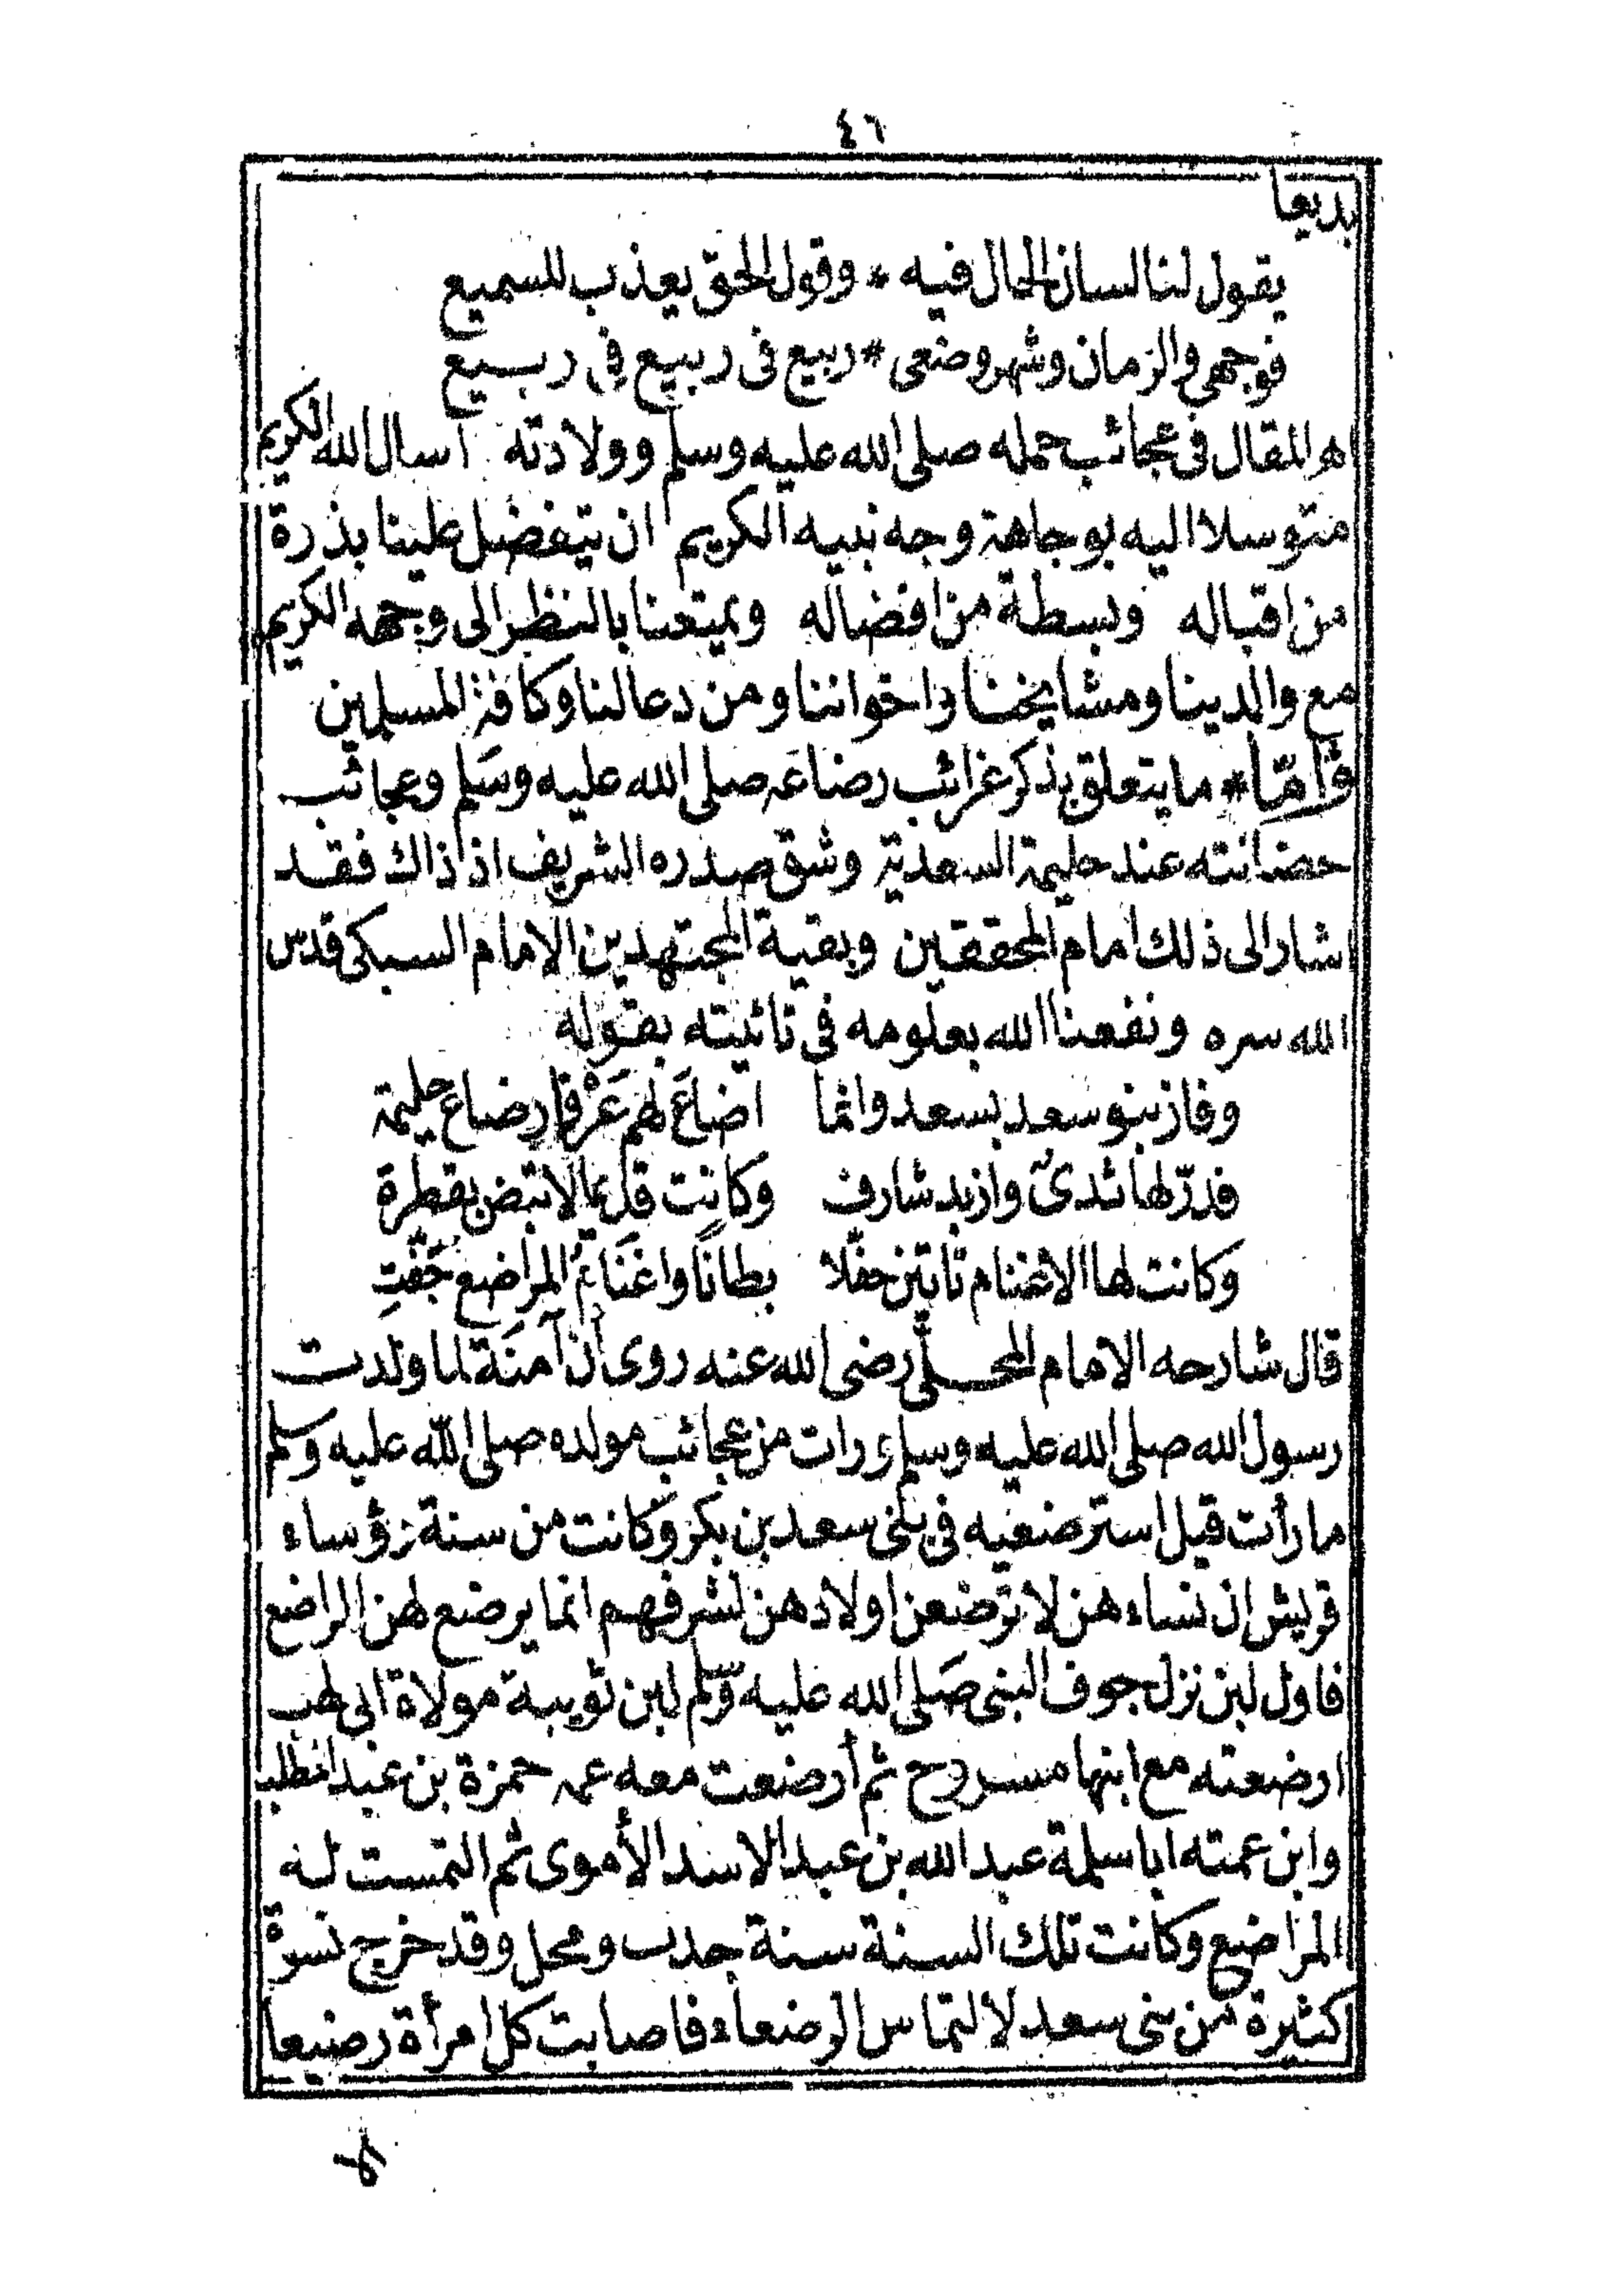 ٤٦
بديعا
يقول لنا لسان الحال فيه * وقول الحق يعذب للسميع
فوجهي والزمان وشهر وضعى * ربيع فى ربيع فى ربيع
اهـ المقال فى عجائب حمله صلى الله عليه وسلم وولادته اسال الله الكريم
متوسلا اليه بوجاهة وجه نبيه الكريم ان يتفضل علينا بذرة
من اقباله وبسطة من افضاله ويمتعنا بالنظر الى وجهه الكريم
مع والدينا ومشايخنا واخواننا ومن دعا لنا وكافة المسلمين
وأمّا * ما يتعلق بذكر غرائب رضاعه صلى الله عليه وسَلم وعجائب
حضانته عند حليمة السعدية وشق صدره الشريف اذ ذاك فقد
اشار الى ذلك امام المحققين وبقية المجتهدين الامام السبكى قدس
الله سره ونفعنا الله بعلومه فى تائيته بقوله
وفاز بنو سعد بسعد وانما اضاعَ لهم عَرْفا رضاع حليمة
فدرّ لها ثدىٌ وازبد شارف وكانت قل ما لا تبض بقطرة
وكانت لها الاغنام تاتين حفّلا بطانًا واغنَامُ المراضع جَفّتِ
قال شارحه الامام المحلّى رضى الله عنه روى أن آمنَة لما ولدت
رسول الله صلى الله عليه وسلم ورات من عجائب مولده صلى الله عليه وسلم
ما رأت قيل استرضعيه فى بنى سعد بن بكر وكانت من سنة رؤساء
قريش ان نساءهن لا ترضعن اولادهن لشرفهم انما يرضع لهن المراضع
فاول لبن نزل جوف النبى صَلى الله عليه وسّلم لبن ثويبة مولاة ابى لهب
ارضعته مع ابنها مسروح ثم أرضعت معه عمه حمزة بن عبد المطلب
وابن عمته ابا سلمة عبد الله بن عبد الاسد الأموى ثم التمست له
المراضع وكانت تلك السنة سنة جدب ومحل وقد خرج نسوة
كثيرة من بنى سعد لالتماس الرضعاء فاصابت كل امرأة رضيعا